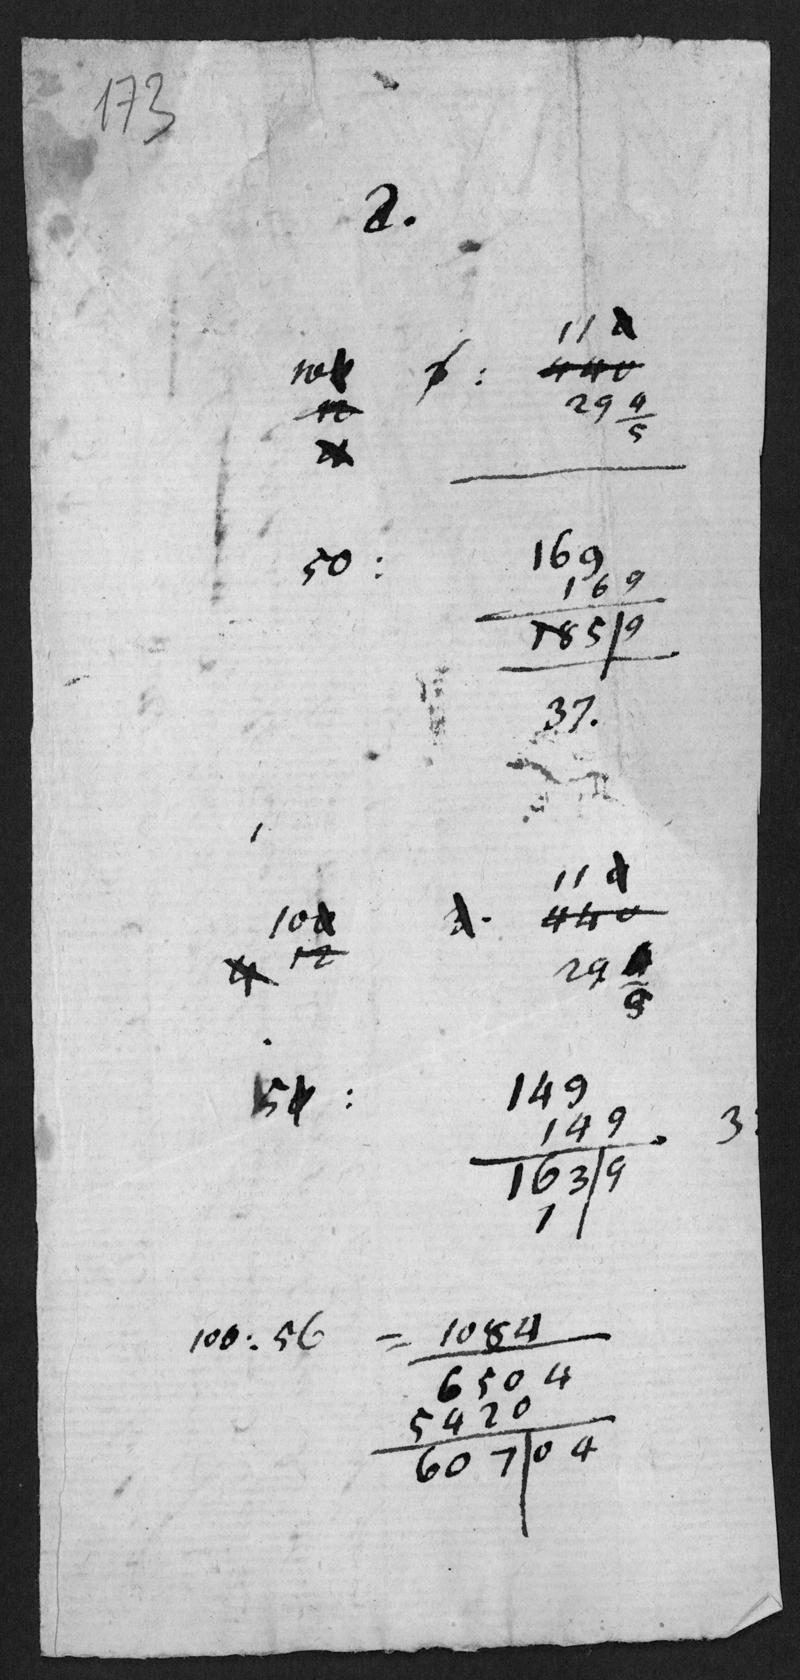 173
2.
11
440
29 4/5
12
50 :
169
169
185|9
37.
11
10
440
12
29
4
5
5 :
149
149 . 3
163|9
1
100 : 56 = 1084
6504
5420
607|04